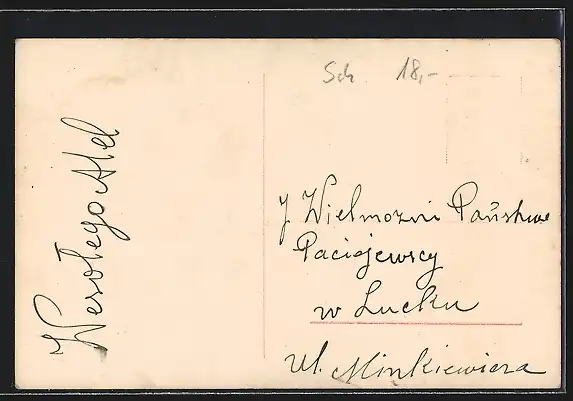 Wesołego Alel
Sch. 18,-
J Wielmożni Państwo
Paciejewscy
w Łucku
Ul. Minkiewicza